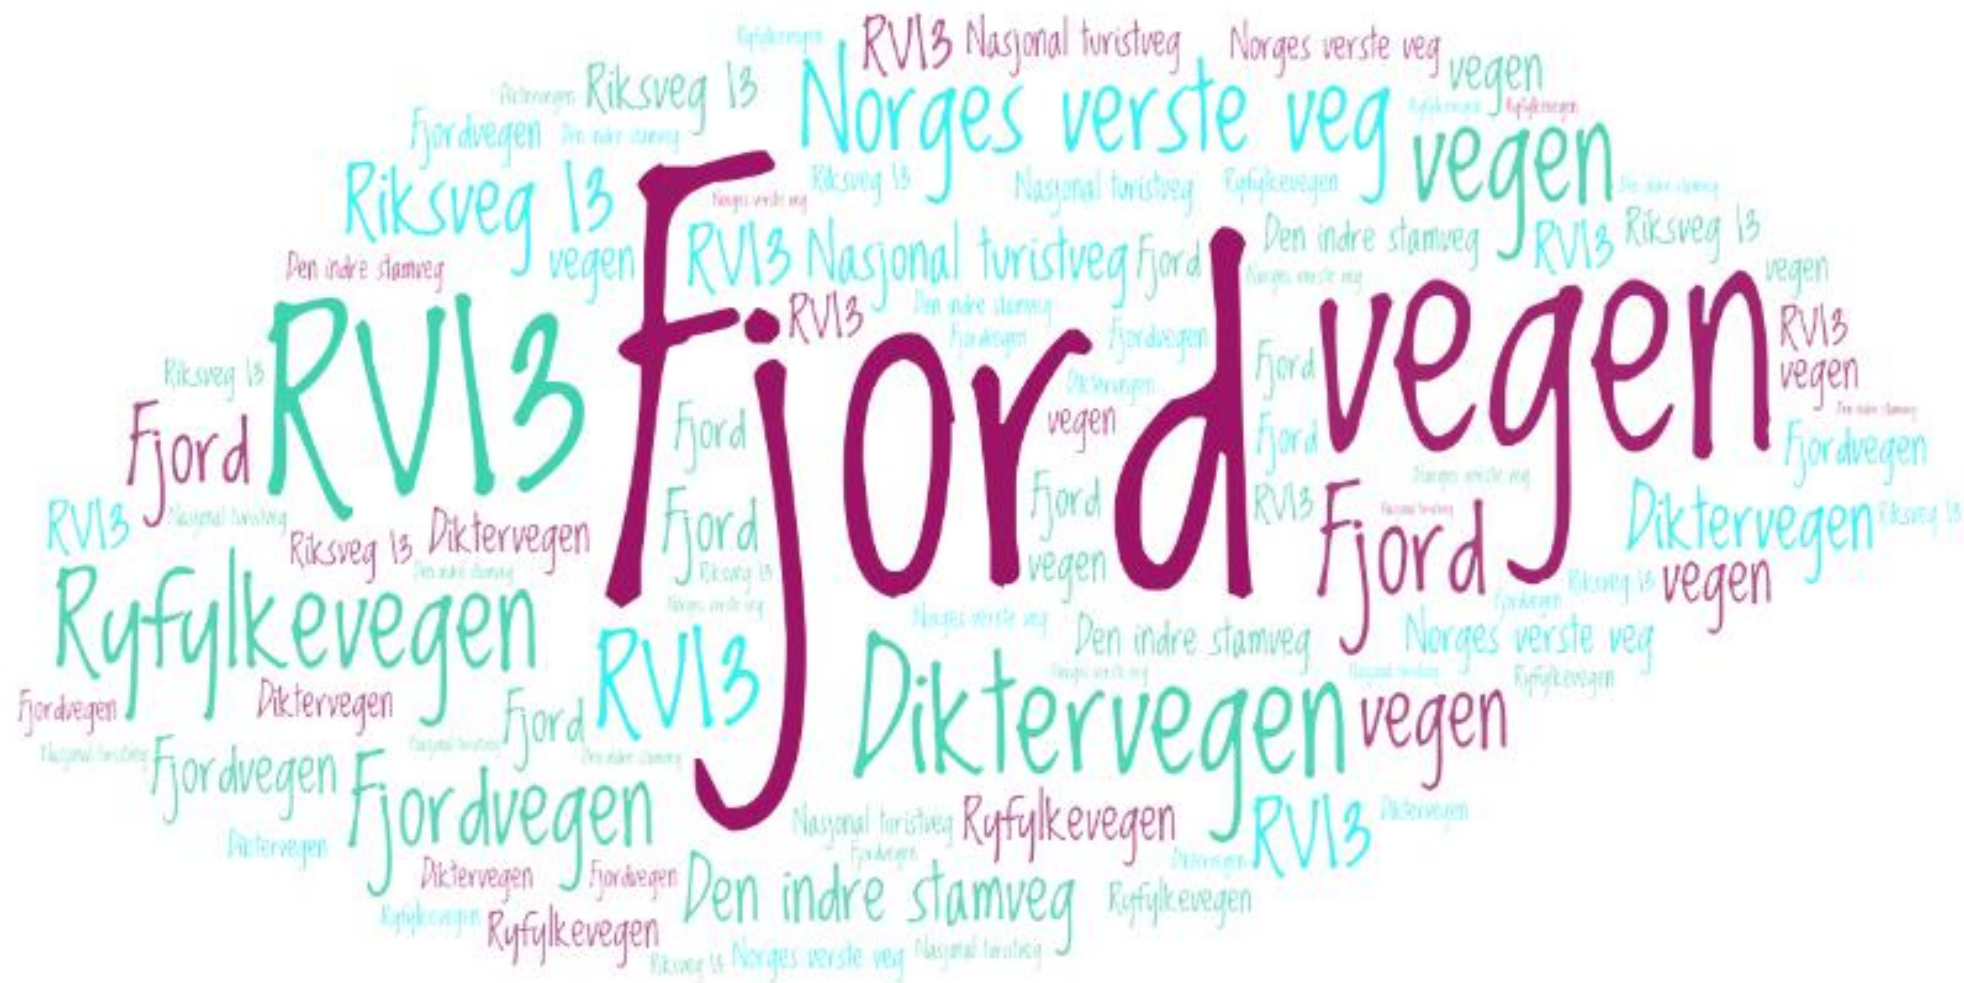 Ryfylkevegen
RV13 Nasjonal turistveg
Norges verste veg
vegen
Diktervegen
Riksveg 13
Norges verste veg
Ryfylkevegen
Ryfylkevegen
Fjordvegen
Den indre stamveg
vegen
Riksveg 13
Norges verste veg
Riksveg 13
Nasjonal turistveg
Ryfylkevegen
Den indre stamveg
vegen
RV13
Nasjonal turistveg
Fjord
Den indre stamveg
RV13
Riksveg 13
Den indre stamveg
Norges verste veg
vegen
RV13
Den indre stamveg
Fjordvegen
Fjordvegen
RV13
Fjord
vegen
RV13
vegen
Riksveg 13
Fjord
Diktervegen
Fjord
vegen
Fjord
Den indre stamveg
Fjordvegen
Fjord
Norges verste veg
RV13
Nasjonal turistveg
Riksveg 13
Diktervegen
Fjord
Fjord
RV13
Nasjonal turistveg
Fjord
Diktervegen
Riksveg 13
Den indre stamveg
Riksveg 13
vegen
Riksveg 13
vegen
Ryfylkevegen
Norges verste veg
RV13
Norges verste veg
Fjordvegen
Den indre stamveg
Norges verste veg
Norges verste veg
Nasjonal turistveg
Ryfylkevegen
Fjordvegen
Diktervegen
Fjord
Diktervegen
vegen
Nasjonal turistveg
Fjordvegen
Nasjonal turistveg
Den indre stamveg
Fjordvegen
Nasjonal turistveg
Ryfylkevegen
RV13
Diktervegen
Diktervegen
Fjordvegen
Diktervegen
Diktervegen
Fjordvegen
Den indre stamveg
Ryfylkevegen
Ryfylkevegen
Ryfylkevegen
Riksveg 13
Norges verste veg
Nasjonal turistveg